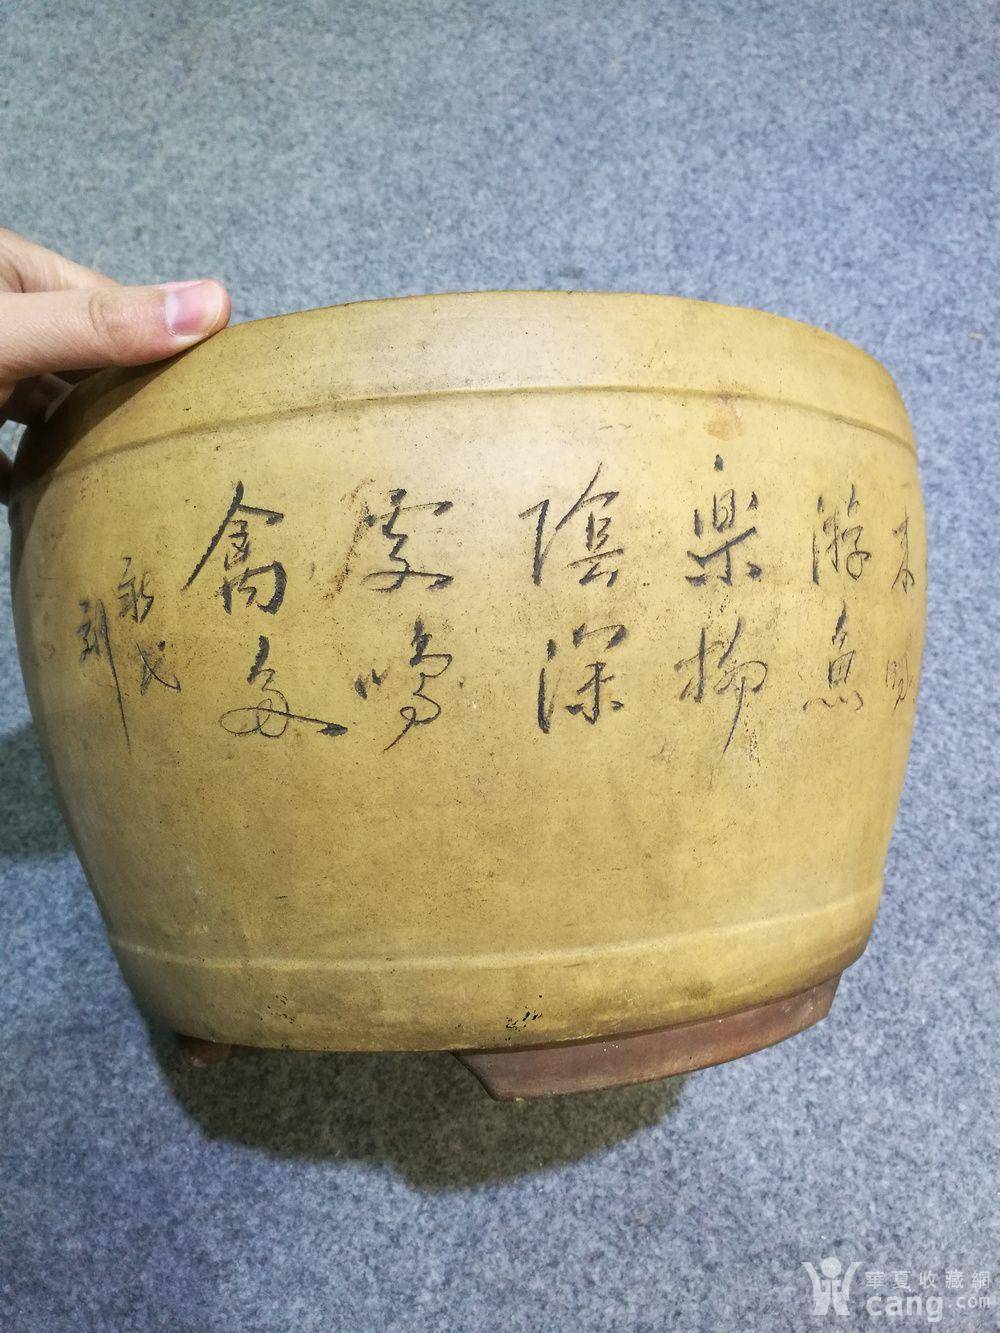 游魚
樂柳
陰深
處鳴
禽多
刻
華夏收藏網
cang.com